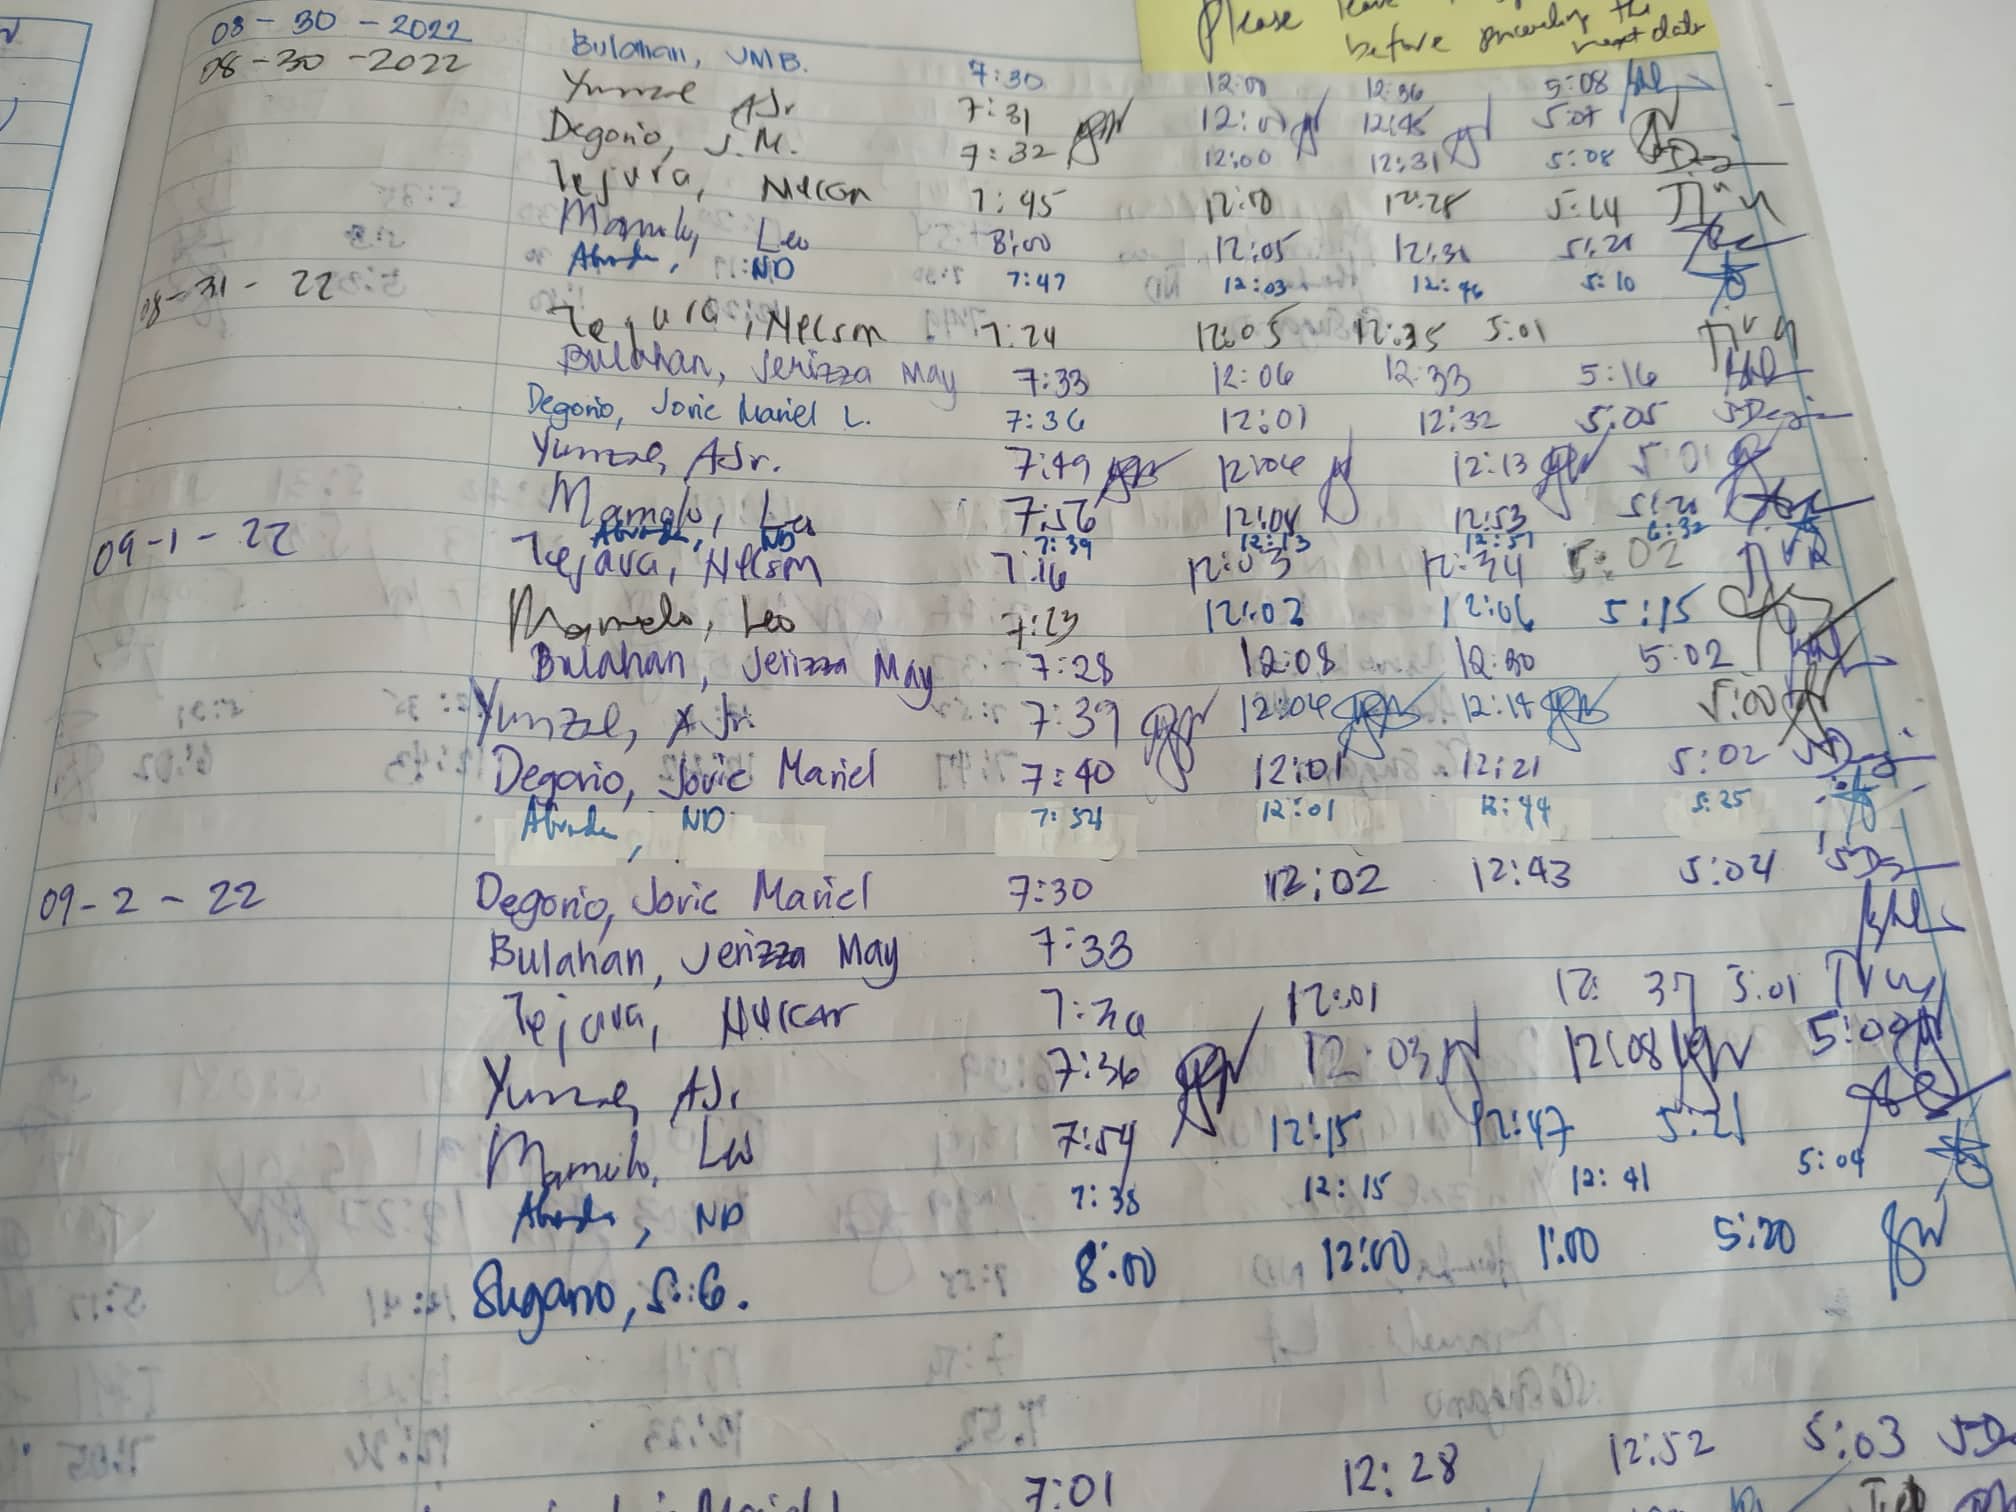 Please leave
before proceeding the
next date
08-30-2022 Bulahan, JMB. 7:30 12:00 12:36 5:08
08-30-2022 Yunzal AJr 7:31 12:01 12:45 5:07
Degorio, J.M. 7:32 12:00 12:31 5:08
Tejura, Nelson 7:45 12:10 12:28 5:14
Mamalo, Leo 8:00 12:05 12:31 5:21
ND 7:47 12:03 12:46 5:10
08-31-22 Tejura, Nelson 7:24 12:05 12:35 5:01
Bulahan, Jerizza May 7:33 12:06 12:33 5:16
Degorio, Joric Mariel L. 7:36 12:01 12:32 5:05
Yunzal, AJr. 7:49 12:04 12:13 5:01
Mamalo, Leo 7:56 12:04 12:53 5:20
ND 7:39 12:13 12:57 6:32
09-1-22 Tejura, Nelson 7:16 12:03 12:34 5:02
Mamalo, Leo 7:23 12:02 12:06 5:15
Bulahan, Jerizza May 7:28 12:08 12:30 5:02
Yunzal, A Jr. 7:39 12:04 12:14 5:00
Degorio, Joric Mariel 7:40 12:01 12:21 5:02
ND 7:54 12:01 12:44 5:25
09-2-22 Degorio, Joric Mariel 7:30 12:02 12:43 5:04
Bulahan, Jerizza May 7:33
Tejura, 12:01 12:37 5:01
Yunzal, AJr. 7:36 12:03 12:08
Mamalo, Leo 7:54 12:15 12:47 5:21
ND 7:38 12:15 12:41 5:04
Sugano, S.G. 8:00 12:00 1:00 5:20
7:01 12:28 12:52 5:03